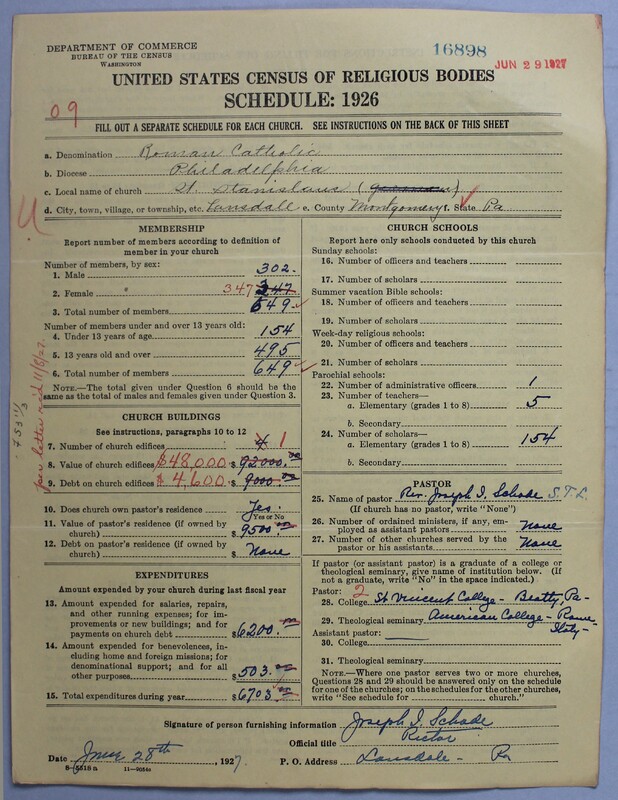 DEPARTMENT OF COMMERCE
BUREAU OF THE CENSUS
WASHINGTON
16898
JUN 29 1927
UNITED STATES CENSUS OF RELIGIOUS BODIES
SCHEDULE: 1926
09
FILL OUT A SEPARATE SCHEDULE FOR EACH CHURCH. SEE INSTRUCTIONS ON THE BACK OF THIS SHEET
a. Denomination Roman Catholic
b. Diocese Philadelphia
c. Local name of church St. Stanislaus
d. City, town, village, or township, etc. Lansdall e. County Montgomery f. State Pa
MEMBERSHIP
Report number of members according to definition of
member in your church
Number of members, by sex:
1. Male 302.
2. Female " 347 347
3. Total number of members 649
Number of members under and over 13 years old:
4. Under 13 years of age 154
5. 13 years old and over 495
6. Total number of members 649
NOTE.—The total given under Question 6 should be
the same as the total of males and females given under Question 3.
per letter recd 11/5/27
CHURCH BUILDINGS
See instructions, paragraphs 10 to 12
7. Number of church edifices 4 1
8. Value of church edifices $48,000. $92000.00
9. Debt on church edifices $4,600. $9000.00
10. Does church own pastor's residence Yes.
Yes or No
11. Value of pastor's residence (if owned by
church) $9500.00
12. Debt on pastor's residence (if owned by
church) $ None
EXPENDITURES
Amount expended by your church during last fiscal year
13. Amount expended for salaries, repairs,
and other running expenses; for im-
provements or new buildings; and for
payments on church debt $6200.00
14. Amount expended for benevolences, in-
cluding home and foreign missions; for
denominational support; and for all
other purposes $503.00
15. Total expenditures during year $6703.00
CHURCH SCHOOLS
Report here only schools conducted by this church
Sunday schools:
16. Number of officers and teachers
17. Number of scholars
Summer vacation Bible schools:
18. Number of officers and teachers
19. Number of scholars
Week-day religious schools:
20. Number of officers and teachers
21. Number of scholars
Parochial schools:
22. Number of administrative officers 1
23. Number of teachers—
a. Elementary (grades 1 to 8) 5
b. Secondary
24. Number of scholars—
a. Elementary (grades 1 to 8) 154
b. Secondary
PASTOR
25. Name of pastor Rev. Joseph I. Schade S.T.L.
(If church has no pastor, write "None")
26. Number of ordained ministers, if any, em-
ployed as assistant pastors None
27. Number of other churches served by the
pastor or his assistants None
If pastor (or assistant pastor) is a graduate of a college or
theological seminary, give name of institution below. (If
not a graduate, write "No" in the space indicated.)
Pastor: 2
28. College St Vincent College - Beatty, Pa-
29. Theological seminary American College - Rome
Italy-
Assistant pastor:
30. College
31. Theological seminary
NOTE.—Where one pastor serves two or more churches,
Questions 28 and 29 should be answered only on the schedule
for one of the churches; on the schedules for the other churches,
write "See schedule for ________ church."
Signature of person furnishing information Joseph I. Schade
Official title Rector
Date June 28th, 1927. P. O. Address Lansdale - Pa
8-5518a 11-9034a